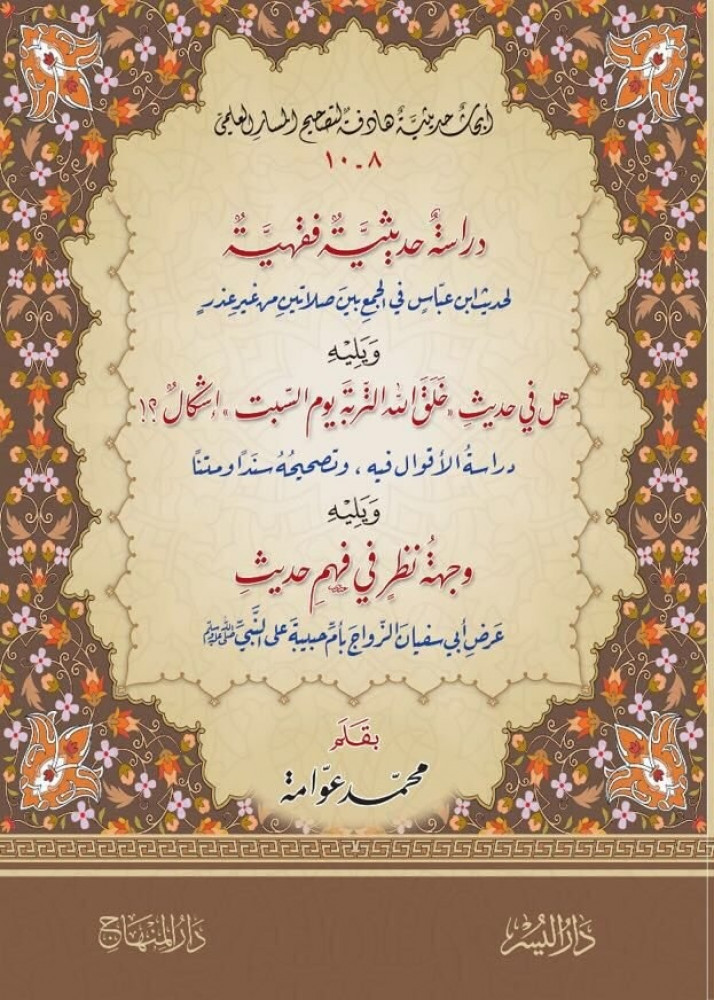 أبحاث حديثيَّة هادفة لتصحيح المسار العلمي
٨ - ١٠
دراسةٌ حديثيَّةٌ فقهيَّةٌ
لحديث ابن عبّاسٍ في الجمع بين صلاتين من غير عذرٍ
وَيَلِيْهِ
هل في حديث «خَلَقَ الله التربةَ يوم السّبت» إشكالٌ؟!
دراسةُ الأقوال فيه، وتصحيحُهُ سندًا ومتنًا
وَيَلِيْهِ
وجهةُ نظرٍ في فهم حديثِ
عَرضِ أبي سفيان الزّواجَ بأمّ حبيبة على النَّبيّ ﷺ
بقَلَم
محمّد عوّامة
دَارُ اليُسْر
دَارُ المِنْهَاج